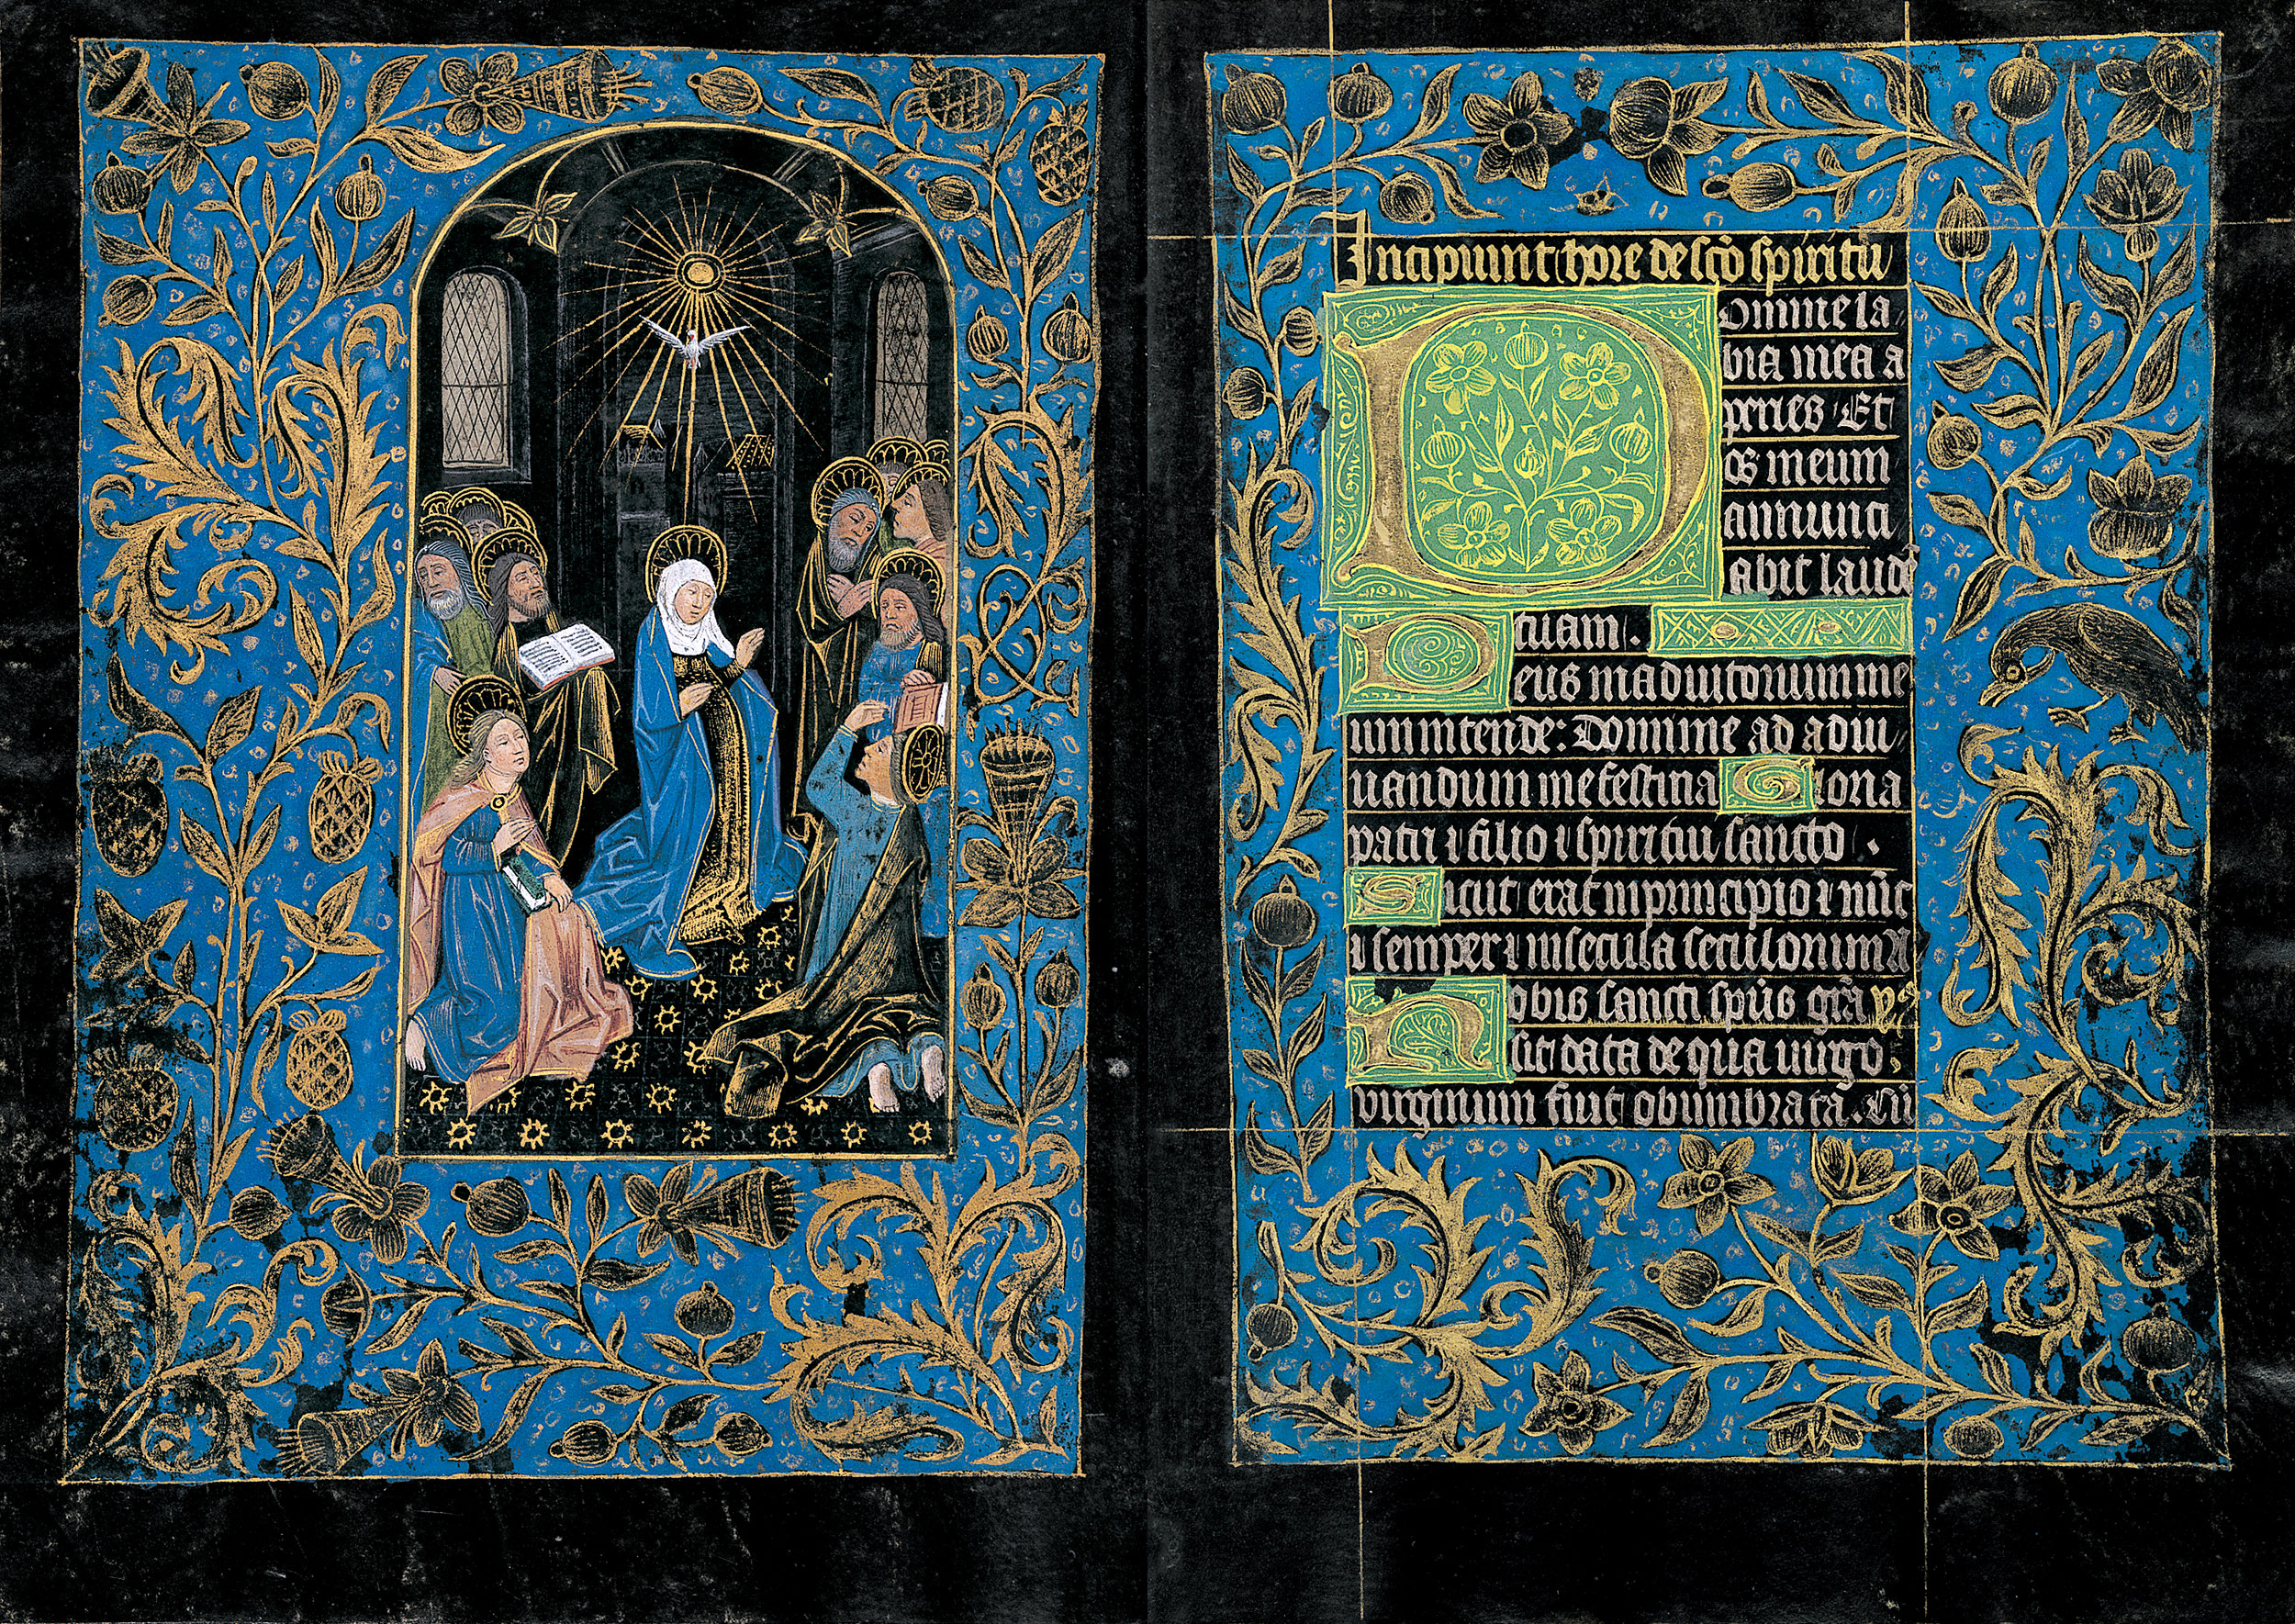 Incipiunt hore de sco spiritu
Domine la
bia mea a
peries Et
os meum
annunci
abit laude
tuam.
Deus in adiutorium me
um intende: Domine ad adiu
uandum me festina Gloria
patri ⁊ filio ⁊ spiritu sancto.
Sicut erat in principio ⁊ nuc
⁊ semper ⁊ in secula seculorum A
Nobis sancti spus gra
sit data de qua uirgo
virginum fuit obumbrata. Cu